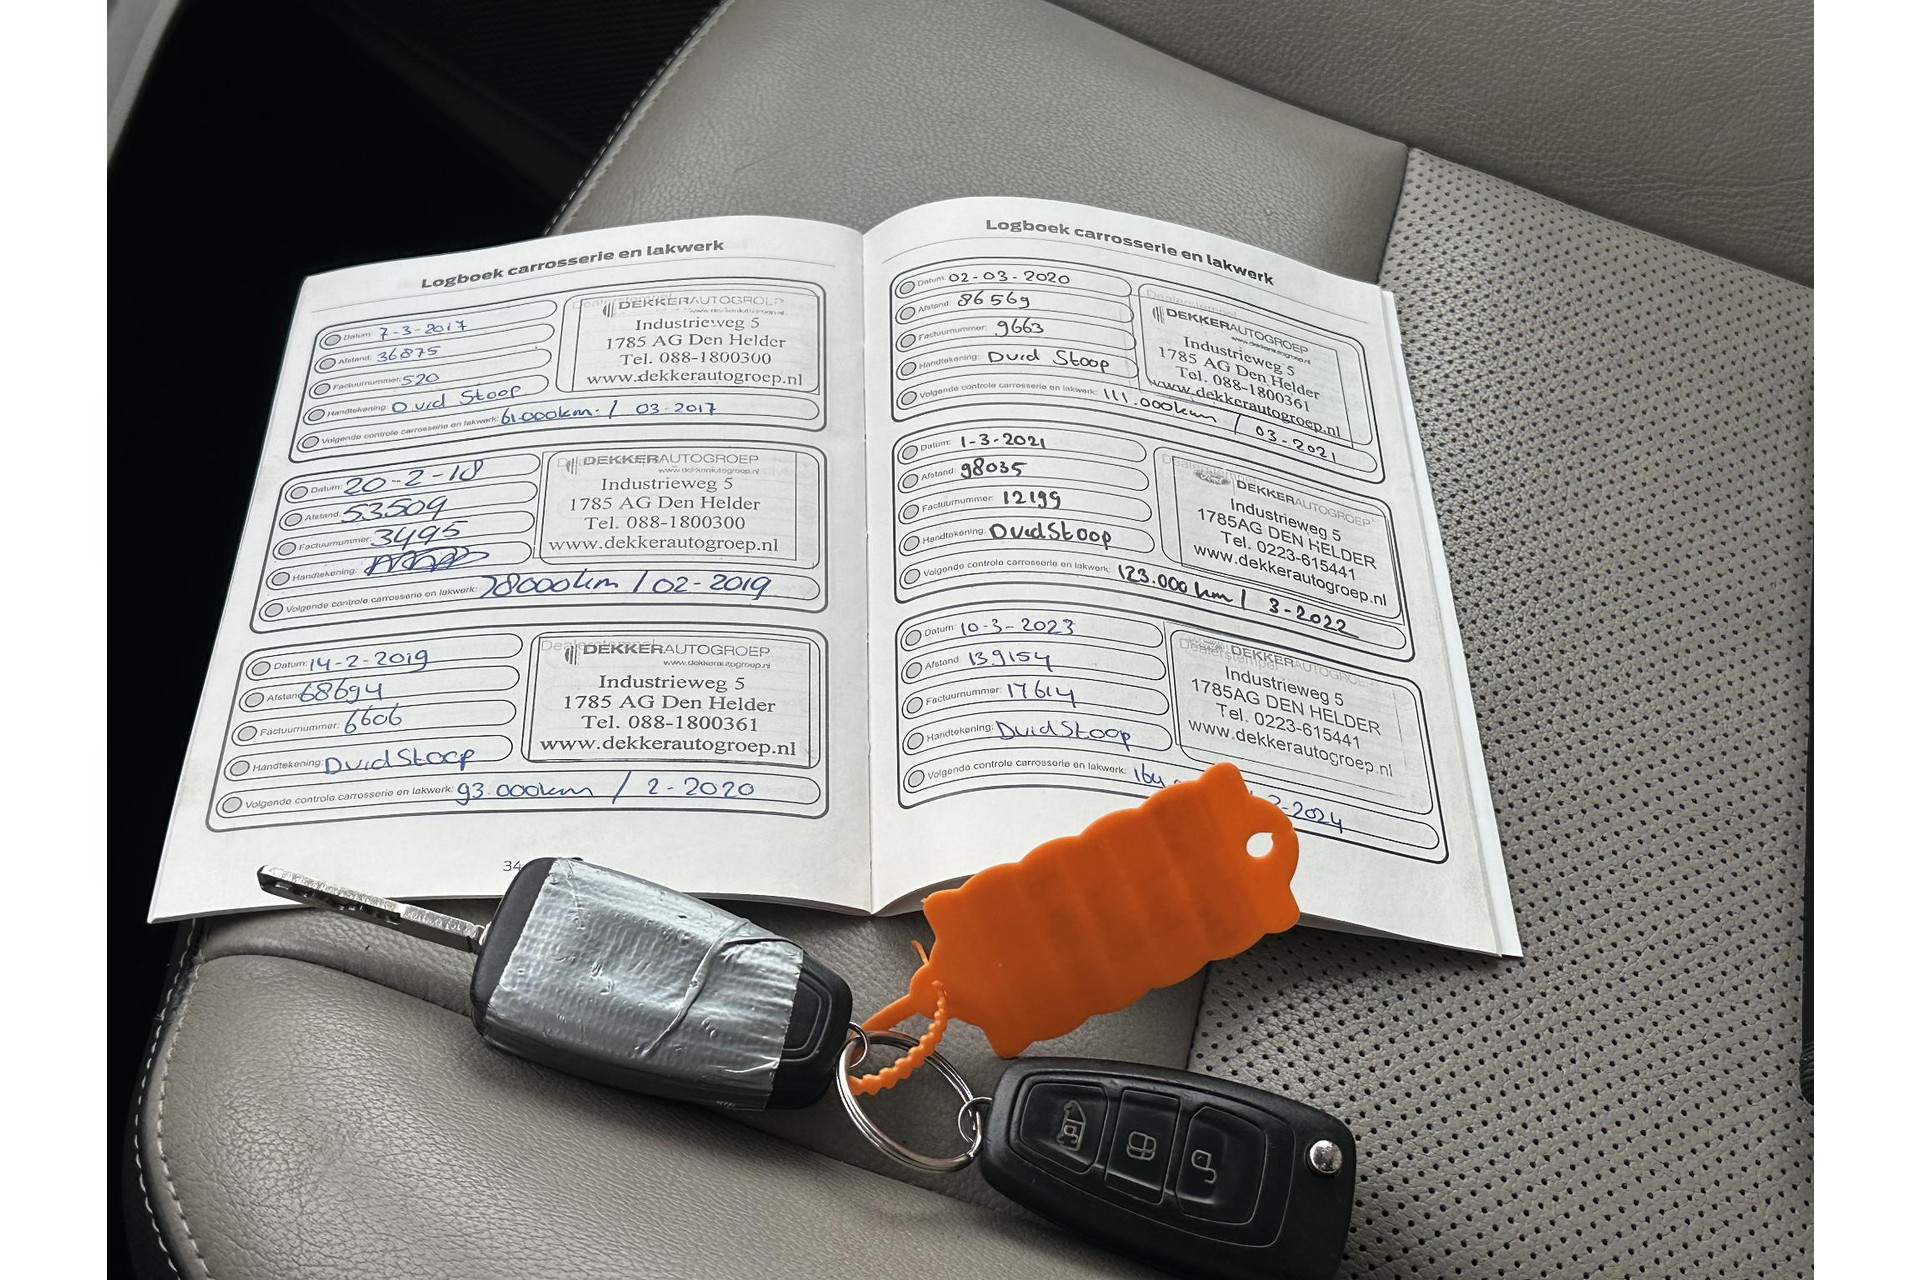 Logboek carrosserie en lakwerk
Datum: 7-3-2017
Afstand: 36875
Factuurnummer: 520
Handtekening: Dvid Stoop
Volgende controle carrosserie en lakwerk: 61.000km. / 03-2017
DEKKERAUTOGROEP
Industrieweg 5
1785 AG Den Helder
Tel. 088-1800300
www.dekkerautogroep.nl
Datum: 20-2-18
Afstand: 53509
Factuurnummer: 3495
Handtekening:
Volgende controle carrosserie en lakwerk: 78000km / 02-2019
DEKKERAUTOGROEP
www.dekkerautogroep.nl
Industrieweg 5
1785 AG Den Helder
Tel. 088-1800300
www.dekkerautogroep.nl
Datum: 14-2-2019
Afstand: 68694
Factuurnummer: 6606
Handtekening: Dvid Stoop
Volgende controle carrosserie en lakwerk: 93.000km / 2-2020
Dealerstempel
DEKKERAUTOGROEP
www.dekkerautogroep.nl
Industrieweg 5
1785 AG Den Helder
Tel. 088-1800361
www.dekkerautogroep.nl
34
Logboek carrosserie en lakwerk
Datum: 02-03-2020
Afstand: 86569
Factuurnummer: 9663
Handtekening: Dvid Stoop
Volgende controle carrosserie en lakwerk: 111.000km / 03-2021
Dealerstempel
DEKKERAUTOGROEP
www.dekkerautogroep.nl
Industrieweg 5
1785 AG Den Helder
Tel. 088-1800361
www.dekkerautogroep.nl
Datum: 1-3-2021
Afstand: 98035
Factuurnummer: 12199
Handtekening: Dvid Stoop
Volgende controle carrosserie en lakwerk: 123.000km / 3-2022
DEKKERAUTOGROEP
Industrieweg 5
1785AG DEN HELDER
Tel. 0223-615441
www.dekkerautogroep.nl
Datum: 10-3-2023
Afstand: 139154
Factuurnummer: 17614
Handtekening: Dvid Stoop
Volgende controle carrosserie en lakwerk: 164 2024
Dealerstempel
DEKKERAUTOGROEP
Industrieweg 5
1785AG DEN HELDER
Tel. 0223-615441
www.dekkerautogroep.nl